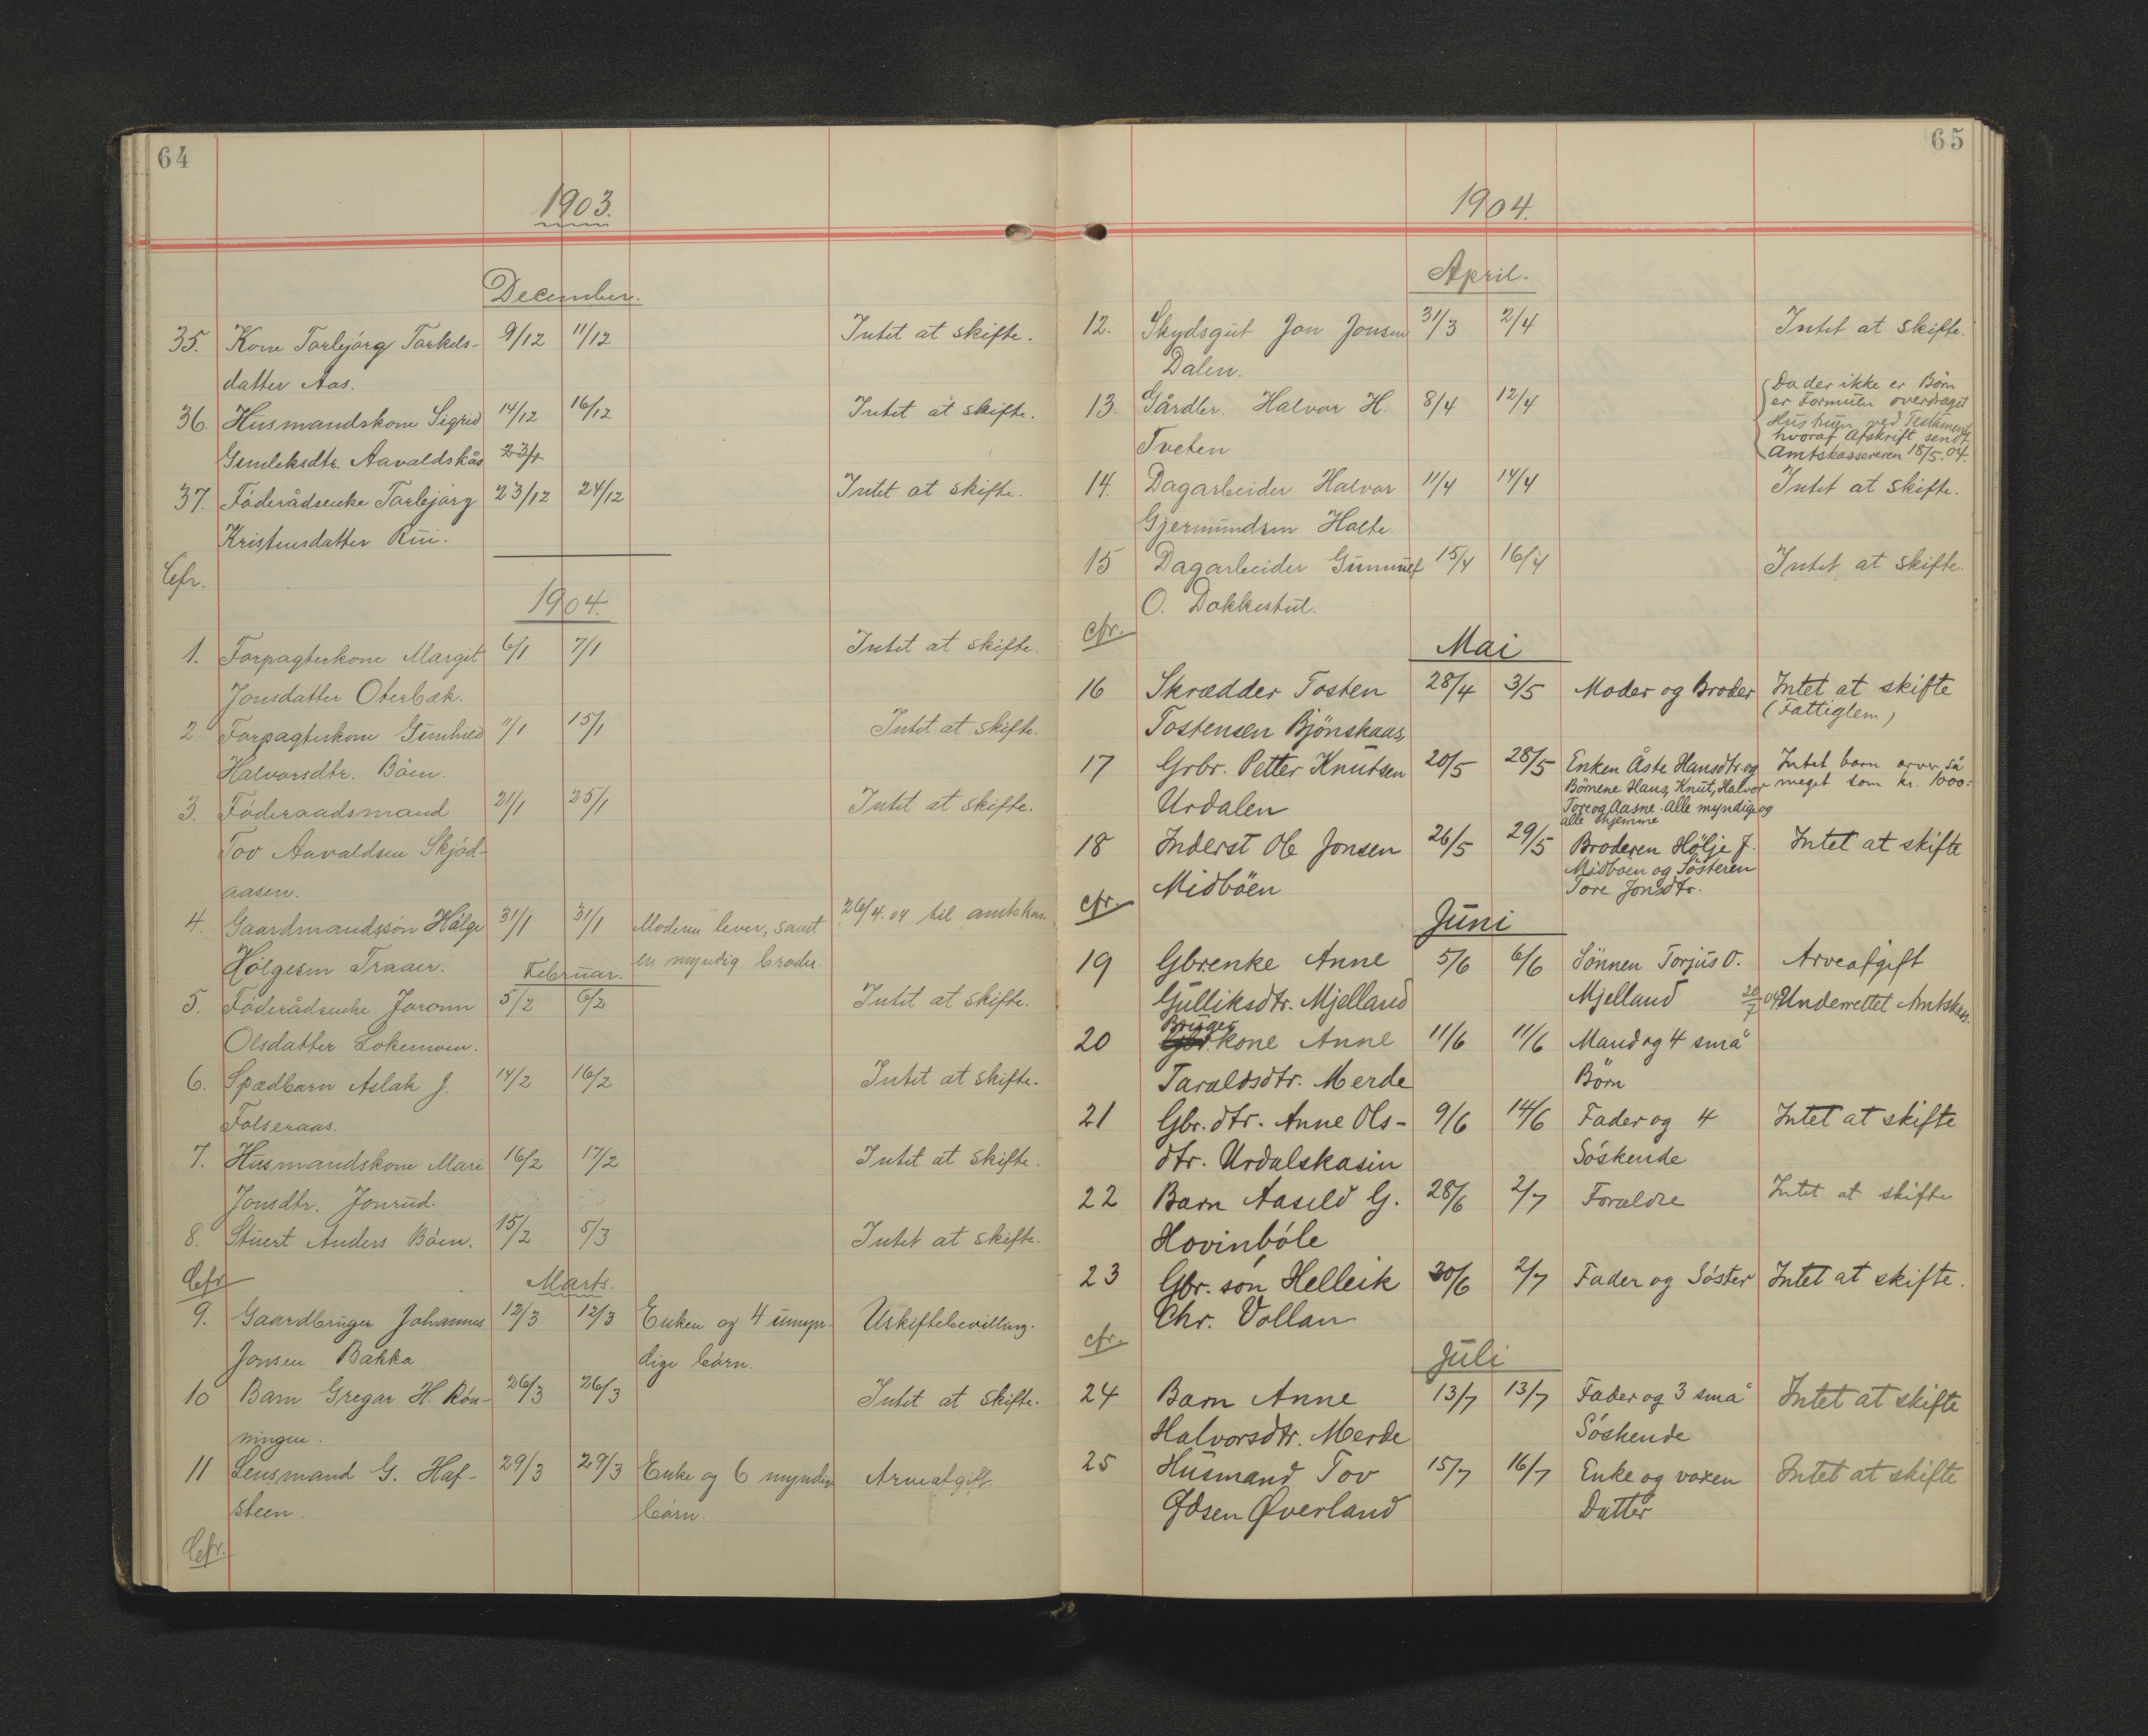 64
1903.
December.
35. Kone Torbjørg Torkels- 9/12 11/12 Intet at skifte.
datter Aas.
36. Husmandskone Sigrid 14/12 16/12 Intet at skifte.
Gunleksdtr. Aavaldskås 23/1
37. Föderådsenke Torbjørg 23/12 24/12 Intet at skifte.
Kristensdatter Rui.
Cfr.
1904.
1. Forpagterkone Margit 6/1 7/1 Intet at skifte.
Jonsdatter Oterbæk.
2. Forpagterkone Gunhild 7/1 15/1 Intet at skifte.
Halvorsdtr. Böen.
3. Föderaadsmand 21/1 25/1 Intet at skifte.
Tov Aavaldsen Skjöd-
aasen.
4. Gaardmandssön Hölge 31/1 31/1 Moderen lever, samt 26/4.04 til amtskas.
Hölgesen Traaer. en myndig broder.
Februar.
5. Föderådsenke Joronn 5/2 6/2 Intet at skifte.
Olsdatter Lokemoen.
6. Spædbarn Aslak J. 14/2 16/2 Intet at skifte.
Folseraas.
7. Husmandskone Mari 16/2 17/2 Intet at skifte.
Jonsdtr. Jonrud.
8. Stuert Anders Böen. 15/2 5/3 Intet at skifte.
Cfr
Marts.
9. Gaardbruger Johannes 12/3 12/3 Enken og 4 umyn- Uskiftebevilling.
Jonsen Bakka dige börn.
10 Barn Gregar H. Rön- 26/3 26/3 Intet at skifte.
ningen.
11 Lensmand G. Haf- 29/3 29/3 Enke og 6 myndige Arveafgift.
steen. börn.
Cfr.
65
1904.
April.
12. Skydsgut Jon Jonsen 31/3 2/4 Intet at skifte.
Dalen.
13. Gårdbr. Halvor H. 8/4 12/4 Da der ikke er Börn
er Formuen overdraget
Tveten Hustruen ved Testament
hvoraf Afskrift sendt
Amtskassereren 18/5.04.
14. Dagarbeider Halvor 11/4 14/4 Intet at skifte.
Gjermundsen Holte.
15 Dagarbeider Gunnulf 15/4 16/4 Intet at skifte.
O. Dokkestul.
cfr.
Mai
16 Skrædder Tosten 28/4 3/5 Moder og Broder Intet at skifte
Tostensen Bjönskaas, (Fattiglem)
17 Grbr. Petter Knutsen 20/5 28/5 Enken Åste Hansdtr. og Intet barn arver så
Urdalen Börnene Hans, Knut, Halvor meget som kr. 1000.-
Tore og Aasne. Alle myndige og
alle hjemme
18 Inderst Ole Jonsen 26/5 29/5 Broderen Hölje J. Intet at skifte
Midböen Midböen og Sösteren
Tore Jonsdtr.
cfr.
Juni
19 Gbrenke Anne 5/6 6/6 Sönnen Torjus O. Arveafgift
Gulliksdtr. Mjelland Mjelland 20/7 04 Underrettet Amtskass.
Bruger
20 Gbr.kone Anne 11/6 11/6 Mand og 4 små
Taraldsdtr. Merde Börn
21 Gbr. dtr. Anne Ols- 9/6 14/6 Fader og 4 Intet at skifte
dtr. Urdalskasin Söskende
22 Barn Aasild G. 28/6 2/7 Forældre Intet at skifte
Hovinböle
23 Gbr. sön Helleik 30/6 2/7 Fader og Söster Intet at skifte.
Chr. Vollan
cfr.
Juli
24 Barn Anne 13/7 13/7 Fader og 3 små Intet at skifte
Halvorsdtr. Merde Söskende
25 Husmand Tov 15/7 16/7 Enke og voxen Intet at skifte
Odsen Øverland Datter